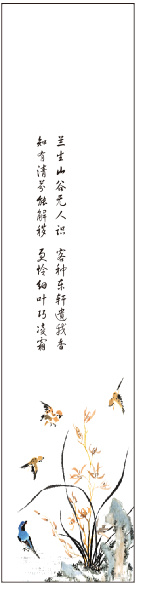 兰生山谷无人识 客种东轩遗我香
知有清芬能解秽 更怜细叶巧凌霜